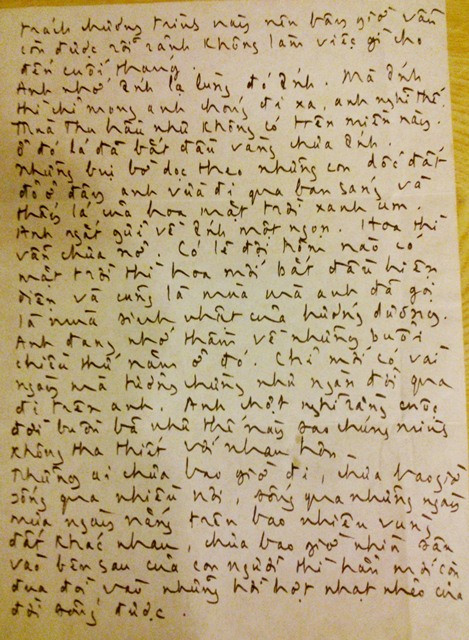 trách chương trình này nên bây giờ vẫn
còn được rỗi rảnh không làm việc gì cho
đến cuối tháng.
Anh nhớ Ánh lạ lùng đó Ánh. Mà Ánh
thì chỉ mong anh chóng đi xa, anh nghĩ thế.
Mùa Thu hầu như không có trên miền này.
Ở đó lá đã bắt đầu vàng chưa Ánh.
Những bụi bờ dọc theo những con dốc đất
đỏ ở đây anh vừa đi qua ban sáng và
thấy lá của hoa mặt trời xanh um.
Anh ngắt gửi về Ánh một ngọn. Hoa thì
vẫn chưa nở. Có lẽ đợi hôm nào có
mặt trời thì hoa mới bắt đầu hiện
diện và cũng là mùa mà anh đã gọi
là mùa sinh nhật của hướng dương.
Anh đang nhớ thầm về những buổi
chiều thứ năm ở đó. Chỉ mới có vài
ngày mà tưởng chừng như ngàn đời qua
đi trên anh. Anh chợt nghĩ rằng cuộc
đời buồn bã như thế này sao chúng mình
không tha thiết với nhau hơn.
Những ai chưa bao giờ đi, chưa bao giờ
sống qua nhiều nơi, sống qua những ngày
mưa ngày nắng trên bao nhiêu vùng
đất khác nhau, chưa bao giờ nhìn sâu
vào bên sau của con người thì hẳn mới còn
đua đòi vào những hời hợt nhạt nhẽo của
đời sống được.